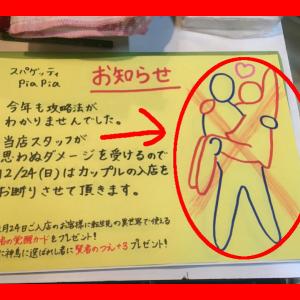 スパゲッティ
PiaPia
お知らせ
今年も攻略法が
わかりませんでした。
当店スタッフが
思わぬダメージを受けるので
12/24(日)はカップルの入店を
お断りさせて頂きます。
月24日ご入店のお客様に
の異世界で使える
の覚醒カードをプレゼント!
に神馬に選ばれし者に賢者のつえ+3プレゼント!